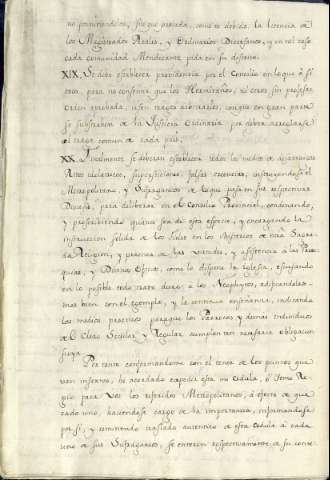 no permitiendose, sin que preceda, como es debido la licencia de
los Magistrados Reales, y Ordinarios Diocesanos, y en tal caso
cada comunidad Mendicante pida en su distrito.
XIX. Se debe establecer providencia por el Concilio en lo que à sí
toca, para no consentir que los Hermitaños, ni otros sin profesar
Orden aprobada, usen trages monacales, con que en gran parte
se substrahen de la Justicia Ordinaria, pues deben arreglarse
al trage comun de cada país.
XX. Finalmente se deberan establecer todos los medios de desarraigar
Ritos idolatricos, supersticiones, falsas creencias, instruyendose el
Metropolitano, y Sufraganeos de lo que pasa en sus respectivas
Diocesis, para deliberar en el Concilio Provincial, condenando,
y proscribiendo quanto sea de esta especie, y encargando la
instruccion solida de los Fieles en los Misterios de nra Sagra-
da Religion, y practica de las virtudes, y asistencia à las Parro-
quias, y Divinos Oficios, como lo dispone la Iglesia, escusando
en lo posible todo trato duro à los Neophytos, edificandolos
mas bien con el exemplo, y la continua enseñanza, indicando
los medios practicos para que los Parrocos y demas individuos
de el Clero Secular, y Regular cumplan tan necesaria obligacion
suya.
Por tanto conformandome con el tenor de los puntos que
van insertos, he acordado expedir esta mi Cedula, ò Tomo Re-
gio para Vos los referidos Metropolitanos, à efecto de que
cada uno, haciendose cargo de la importancia, informandose
por sí, y remitiendo traslado autentico de esta Cedula à cada
uno de sus Sufraganeos, se enteren respectivamente de su conte-